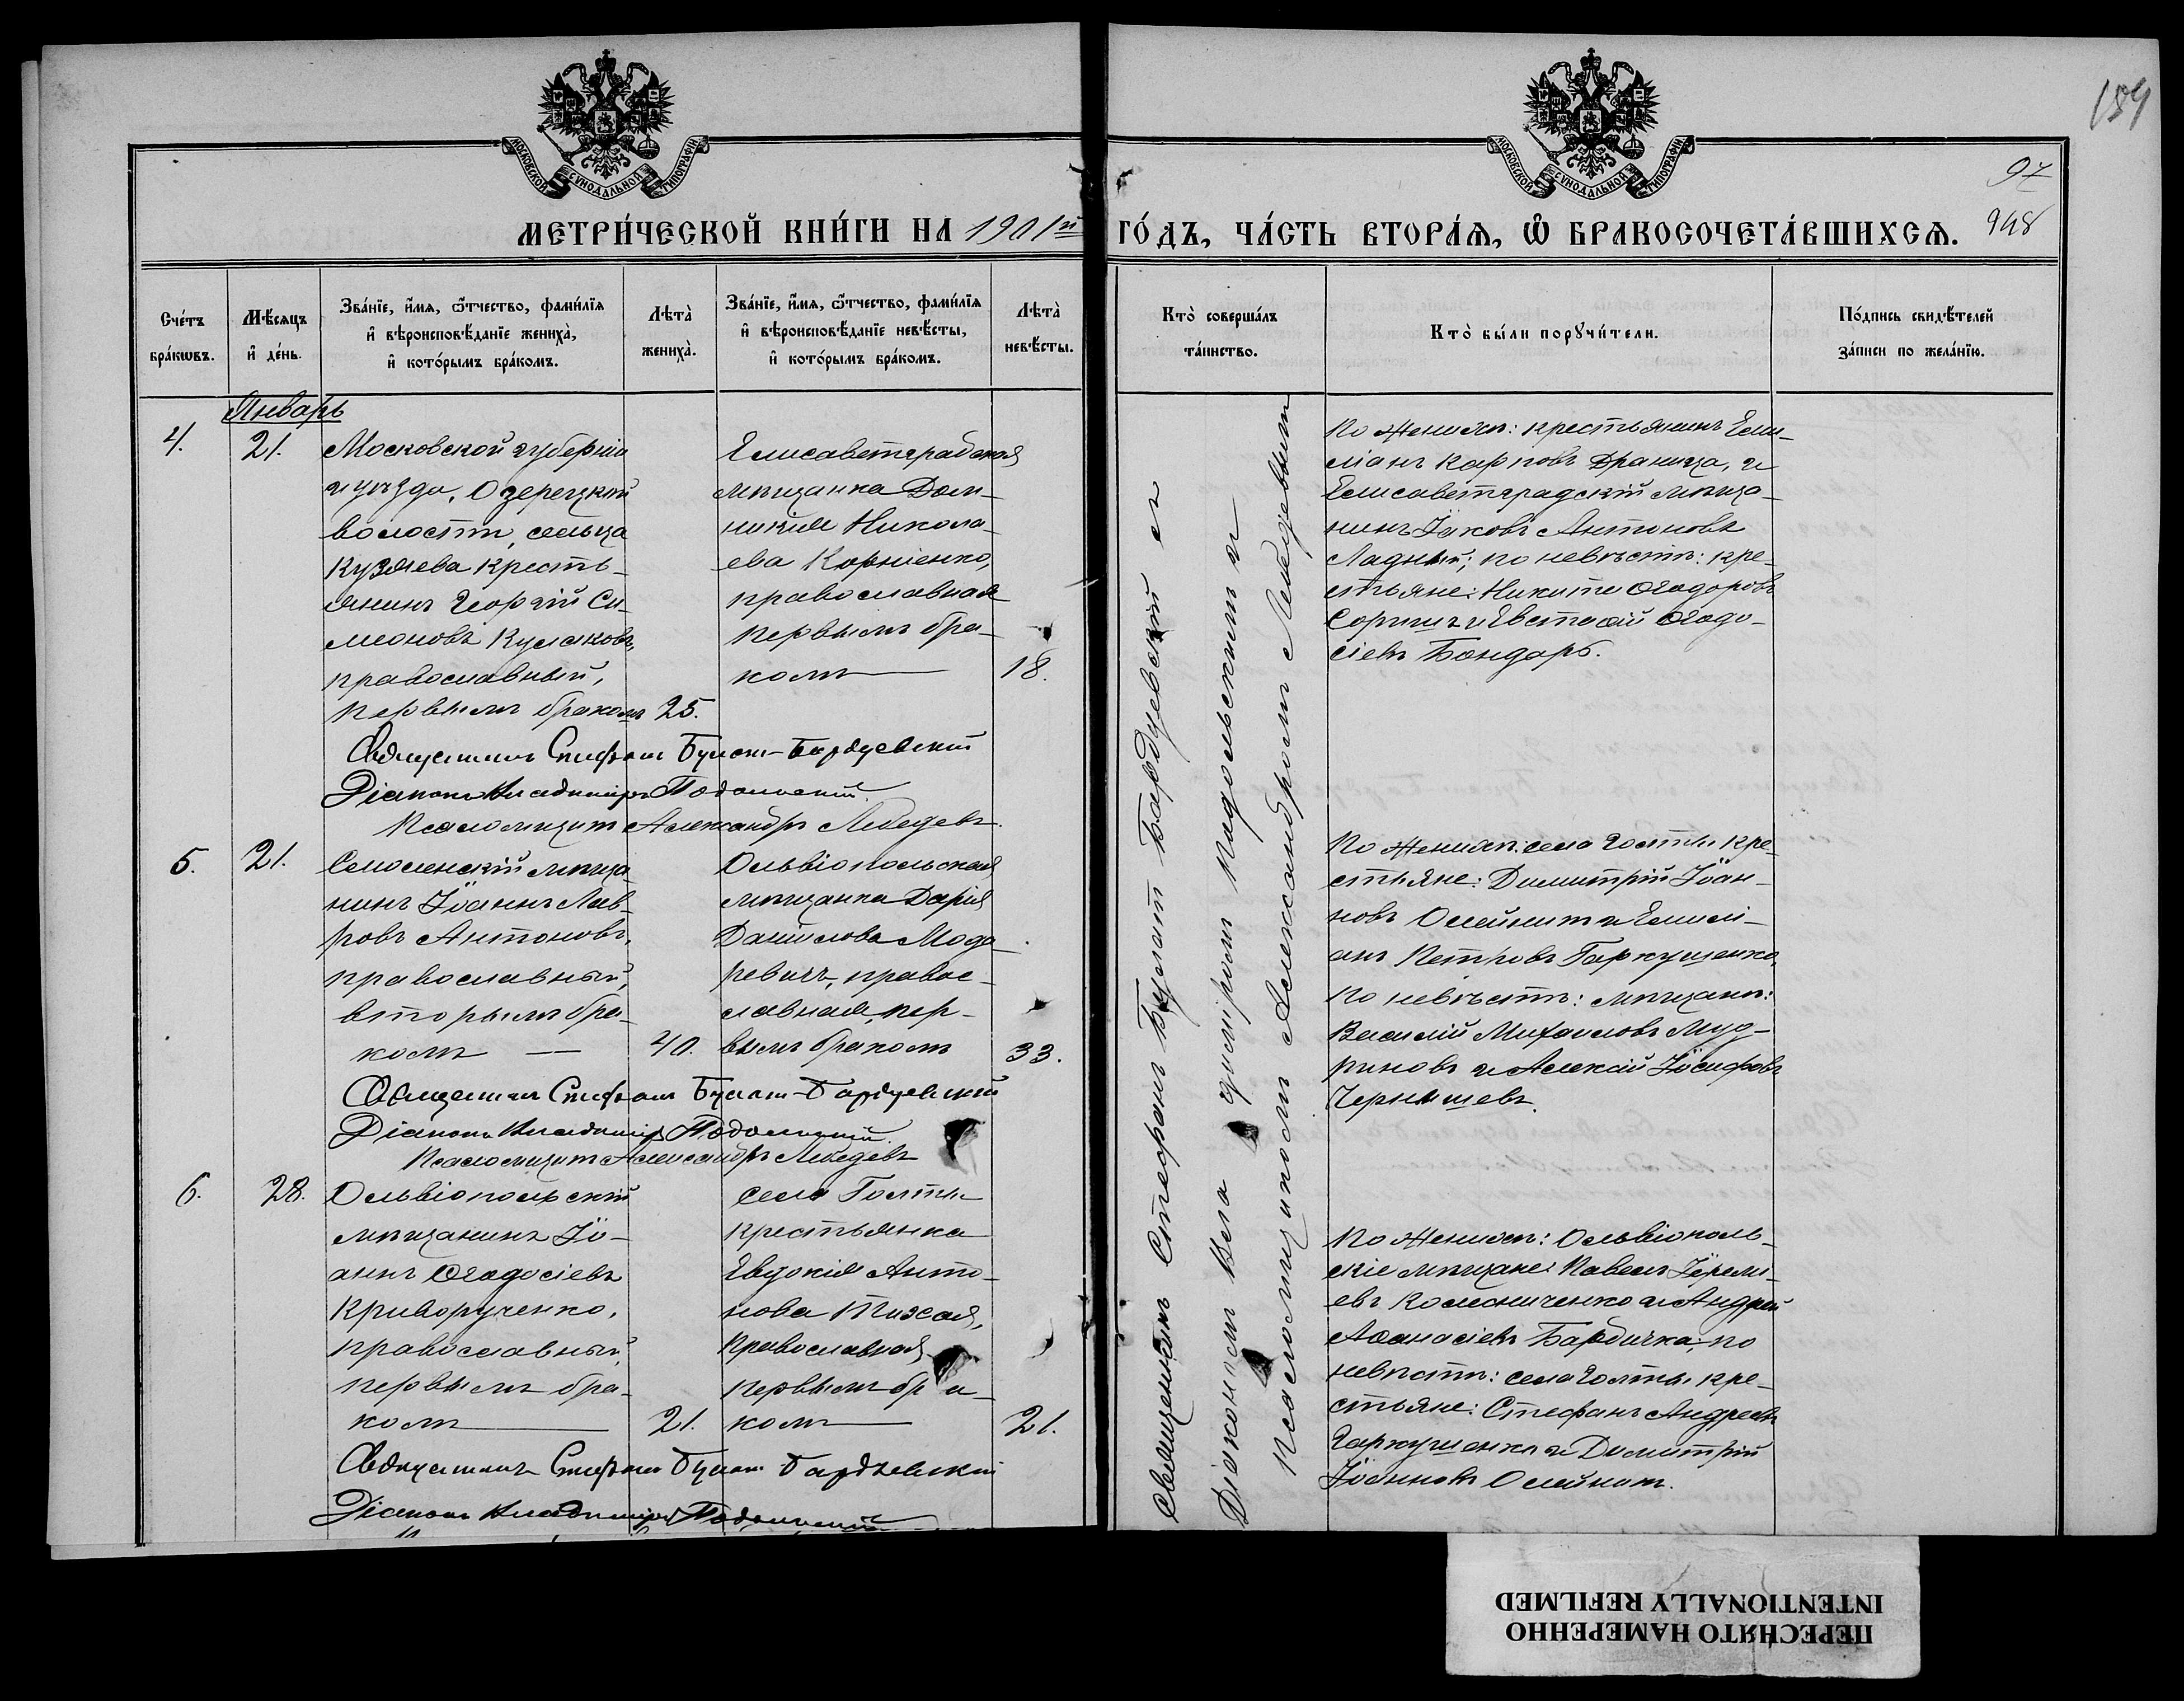 МОСКОВСКОЙ СѴНОДАЛЬНОЙ ТИПОГРАФІИ
МОСКОВСКОЙ СѴНОДАЛЬНОЙ ТИПОГРАФІИ
97
948
МЕТРИ́ЧЕСКОЙ КНИ́ГИ НА 1901й ГО́ДЪ, ЧА́СТЬ ВТОРА́Ѧ, Ѿ БРАКОСОЧЕТА́ВШИХСѦ.
Сче́тъ
бра́кѡвъ.
Мѣ́сѧцъ
и҆ де́нь.
Зва́нїе, и҆́мѧ, ѻ҆́тчество, фами́лїѧ
и҆ вѣроисповѣ́данїе жениха̀,
и҆ кото́рымъ бра́комъ.
Лѣта̀
жениха̀.
Зва́нїе, и҆́мѧ, ѻ҆́тчество, фами́лїѧ
и҆ вѣроисповѣ́данїе невѣ́сты,
и҆ кото́рымъ бра́комъ.
Лѣта̀
невѣ́сты.
Кто̀ соверша́лъ
та́инство.
Кто̀ бы́ли порꙋчи́тели.
По́дпись свидѣ́телей
за́писи по жела́нїю.
Январь
4.
21.
Московской губерніи
и уѣзда, Озерецкой
волости, сельца
Кузяева кресть-
янинъ Георгій Си-
меоновъ Кулаковъ,
православный,
первымъ бракомъ
25.
Елисаветградская
мѣщанка Дом-
никія Никола-
ева Корніенко,
православная
первымъ бра-
комъ
18.
По женихѣ: крестьянинъ Еми-
ліанъ Карповъ Драница, и
Елисаветградскій мѣща-
нинъ Іаковъ Антоновъ
Ладный; по невѣстѣ: кре-
стьяне: Никита Ѳеодоровъ
и Евстаѳій Ѳеодо-
сіевъ Бондарь.
Священникъ Стефанъ Булат-Бардуевскій
Діаконъ Владиміръ Подольскій.
Псаломщикъ Александръ Лебедевъ.
5.
21.
Смоленскій мѣща-
нинъ Іоаннъ Лав-
ровъ Антоновъ,
православный,
вторымъ бра-
комъ
40.
Ольвіопольская
мѣщанка Дарія
Даніилова
правос-
лавная, пер-
вымъ бракомъ
33.
По женихѣ: села Голты кре-
стьяне: Димитрій Іоан-
новъ Олейникъ и Емилі-
анъ Петровъ Гаркушенко,
по невѣстѣ: мѣщане:
Василій Михаиловъ Муд-
риновъ и Алексій Іосифовъ
Чернышевъ.
Священникъ Стефанъ Булат-Бардуевскій
Діаконъ Владиміръ Подольскій.
Псаломщикъ Александръ Лебедевъ
6.
28.
Ольвіопольскій
мѣщанинъ Іо-
аннъ Ѳеодосіевъ
Криворученко,
православный,
первымъ бра-
комъ
21.
села Голты
крестьянка
Евдокія Анто-
нова Тихая,
православная,
первымъ бра-
комъ
21.
По женихѣ: Ольвіополь-
скіе мѣщане: Павелъ Іеремі-
евъ Колесниченко и Андрей
Аѳанасіевъ Барбичка; по
невѣстѣ: села Голты кре-
стьяне: Стефанъ Андреевъ
Гаркушенко и Димитрій
Іоанновъ Олейникъ.
Священникъ Стефанъ Булат Бардуевскій
Діаконъ Владиміръ Подольскій
Священникъ Стефанъ Булатъ Бардуевскій съ
Діакономъ Подольскимъ и
Псаломщикомъ Александромъ Лебедевымъ
ПЕРЕСНЯТО НАМЕРЕННО
INTENTIONALLY REFILMED